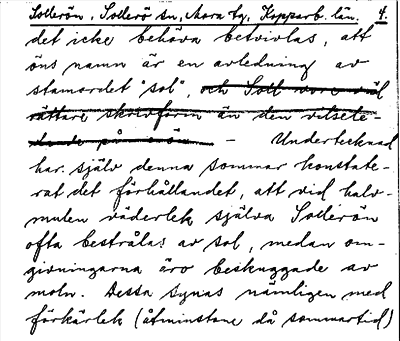 Sollerön, Sollerö sn, Mora tg, Kopparb. län. 4.
det icke behöva betvivlas, att
öns namn är en avledning av
stamordet "sol", och Soll vore väl
rättare skrivform än den vilsete-
dande på -erön — Undertecknad
har själv denna sommar konstate-
rat det förhållandet, att vid halv-
mulen väderlek själva Sollerön
ofta bestrålas av sol, medan om-
givningarna äro beskuggade av
moln. Dessa synas nämligen med
förkärlek (åtminstone då sommartid)